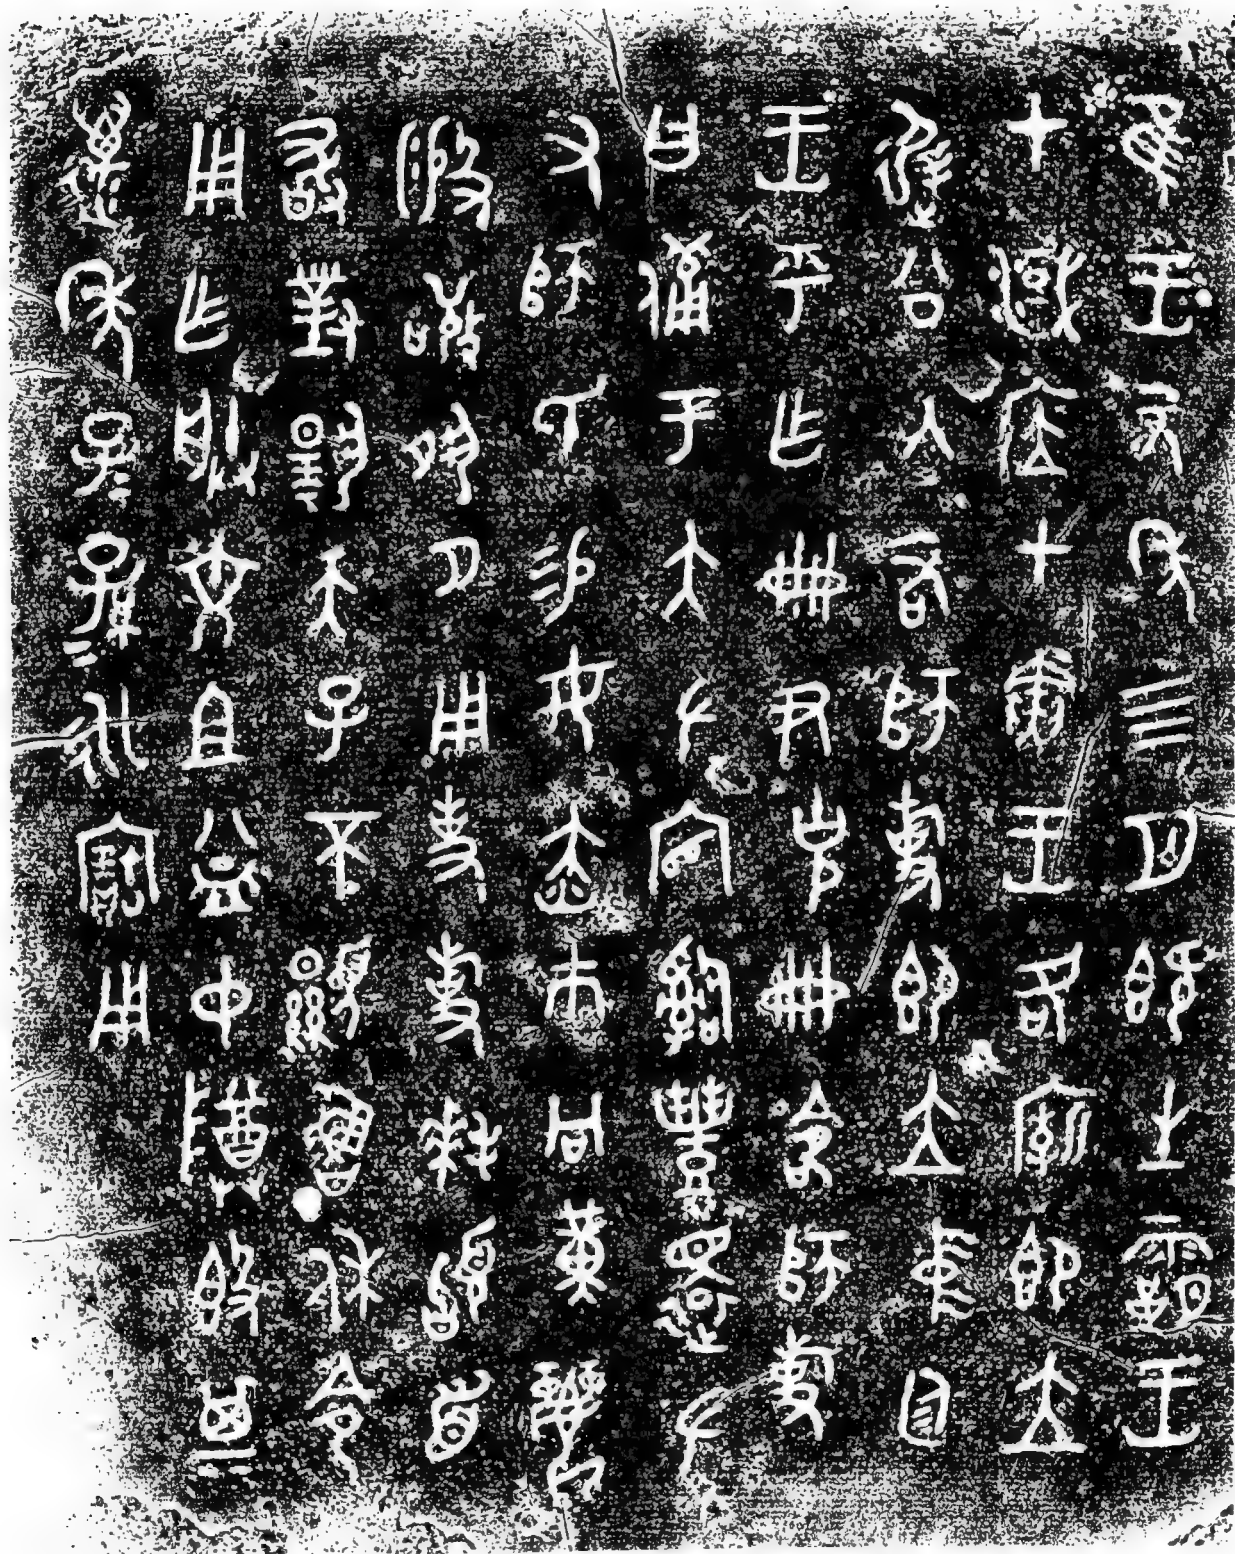 隹王元年四月既生霸王
才淢居甲寅王各廟即立
遅公入右師旋即立中廷
王乎乍冊尹克冊命師旋
曰備于大左官𤔲豐還左
又師氏易女赤巿冋黃麗
般敬夙夕用事旋拜𩒨首
敢對揚天子不顯魯休命
用乍朕文且益中尊簋其
萬年子=孫=永寶用